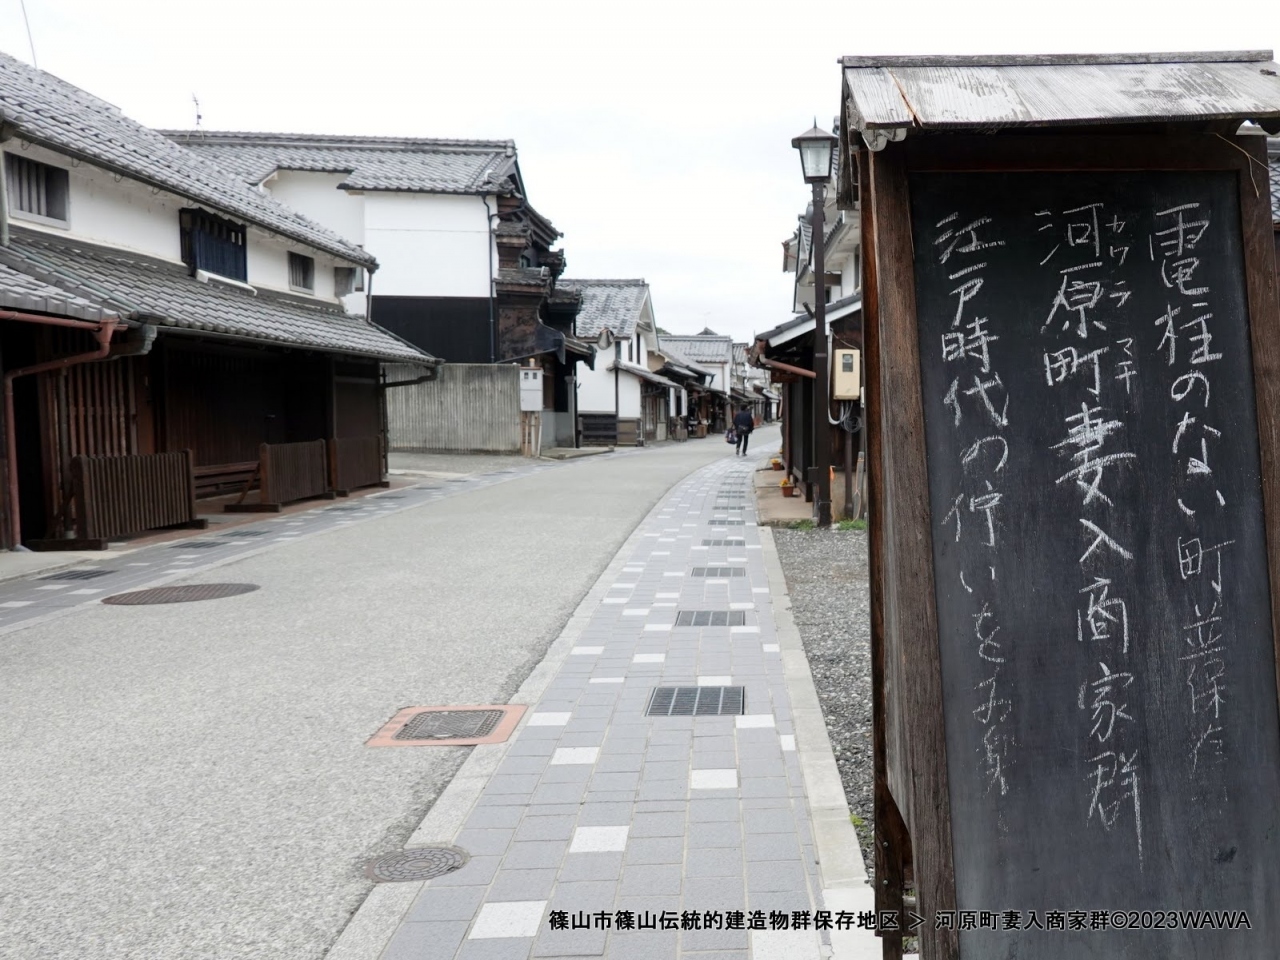 電柱のない町並保存
河原町妻入商家群
カワラマチ
江戸時代の佇いを
篠山市篠山伝統的建造物群保存地区 ＞ 河原町妻入商家群©2023WAWA